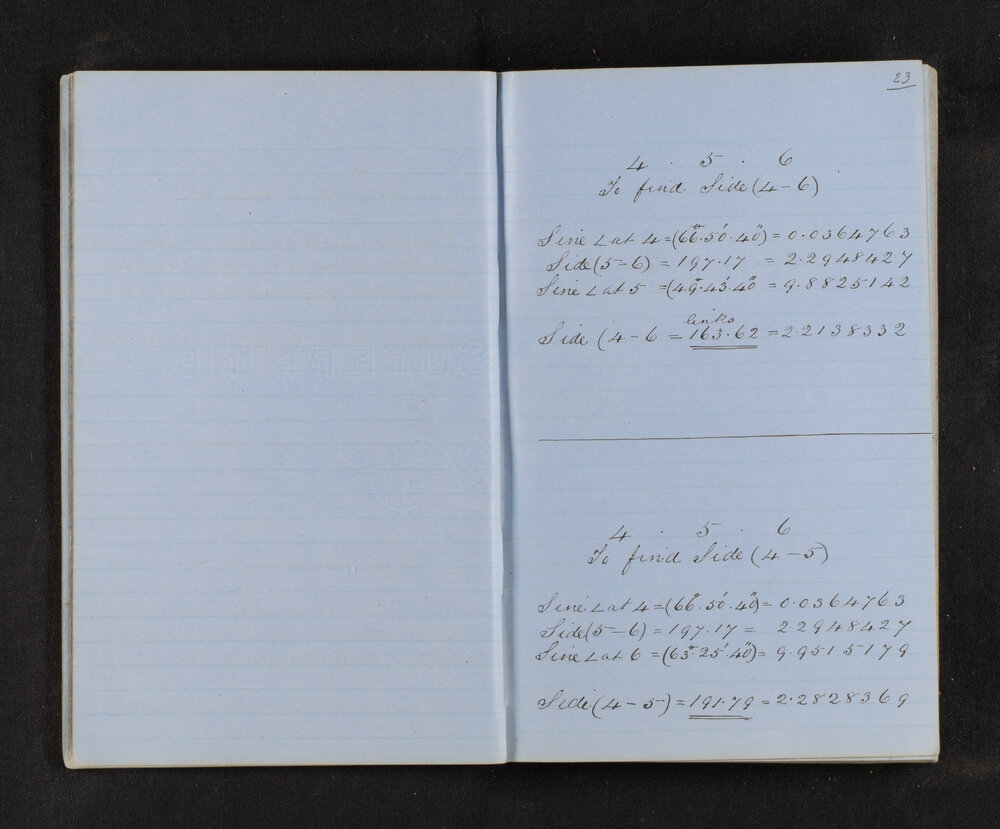 23
4 . 5 . 6
To find Side (4-6)
Sine ∠ at 4 = (66°.50'.40") = 0.0364763
Side (5-6) = 197.17 = 2.2948427
Sine ∠ at 5 = (49°.43'.40" = 9.8825142
links
Side (4-6 = 163.62 = 2.2138332
4 . 5 . 6
To find Side (4-5)
Sine ∠ at 4 = (66°.50'.40") = 0.0364763
Side (5-6) = 197.17 = 2.2948427
Sine ∠ at 6 = (63°.25'.40") = 9.9515179
Side (4-5) = 191.79 = 2.2828369